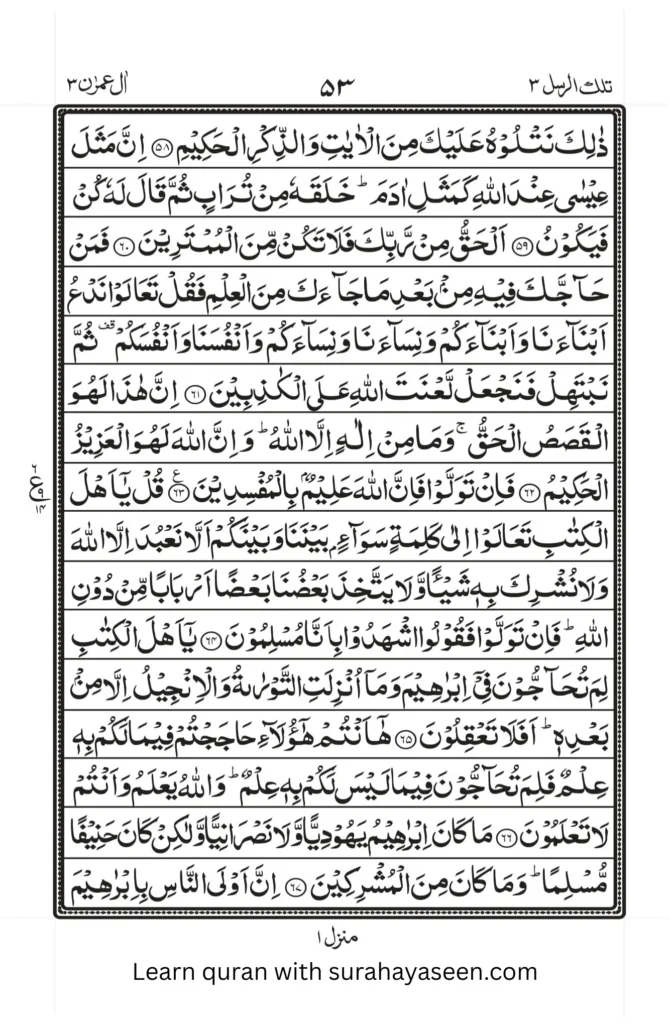 تلك الرسل ٣ ٥٣ اٰل عمرٰن ٣
ذٰلِكَ نَتْلُوْهُ عَلَيْكَ مِنَ الْاٰيٰتِ وَالذِّكْرِ الْحَكِيْمِ ﴿٥٨﴾ اِنَّ مَثَلَ
عِيْسٰى عِنْدَ اللّٰهِ كَمَثَلِ اٰدَمَ ؕ خَلَقَهٗ مِنْ تُرَابٍ ثُمَّ قَالَ لَهٗ كُنْ
فَيَكُوْنُ ﴿٥٩﴾ اَلْحَقُّ مِنْ رَّبِّكَ فَلَا تَكُنْ مِّنَ الْمُمْتَرِيْنَ ﴿٦٠﴾ فَمَنْ
حَآجَّكَ فِيْهِ مِنْۢ بَعْدِ مَا جَآءَكَ مِنَ الْعِلْمِ فَقُلْ تَعَالَوْا نَدْعُ
اَبْنَآءَنَا وَاَبْنَآءَكُمْ وَنِسَآءَنَا وَنِسَآءَكُمْ وَاَنْفُسَنَا وَاَنْفُسَكُمْ قف ثُمَّ
نَبْتَهِلْ فَنَجْعَلْ لَّعْنَتَ اللّٰهِ عَلَى الْكٰذِبِيْنَ ﴿٦١﴾ اِنَّ هٰذَا لَهُوَ
الْقَصَصُ الْحَقُّ ۚ وَمَا مِنْ اِلٰهٍ اِلَّا اللّٰهُ ؕ وَاِنَّ اللّٰهَ لَهُوَ الْعَزِيْزُ
الْحَكِيْمُ ﴿٦٢﴾ فَاِنْ تَوَلَّوْا فَاِنَّ اللّٰهَ عَلِيْمٌۢ بِالْمُفْسِدِيْنَ ﴿٦٣﴾ ع قُلْ يٰۤاَهْلَ
الْكِتٰبِ تَعَالَوْا اِلٰى كَلِمَةٍ سَوَآءٍۭ بَيْنَنَا وَبَيْنَكُمْ اَلَّا نَعْبُدَ اِلَّا اللّٰهَ
وَلَا نُشْرِكَ بِهٖ شَيْـًٔا وَّلَا يَتَّخِذَ بَعْضُنَا بَعْضًا اَرْبَابًا مِّنْ دُوْنِ
اللّٰهِ ؕ فَاِنْ تَوَلَّوْا فَقُوْلُوا اشْهَدُوْا بِاَنَّا مُسْلِمُوْنَ ﴿٦٤﴾ يٰۤاَهْلَ الْكِتٰبِ
لِمَ تُحَآجُّوْنَ فِيْۤ اِبْرٰهِيْمَ وَمَاۤ اُنْزِلَتِ التَّوْرٰىةُ وَالْاِنْجِيْلُ اِلَّا مِنْۢ
بَعْدِهٖ ؕ اَفَلَا تَعْقِلُوْنَ ﴿٦٥﴾ هٰۤاَنْتُمْ هٰۤؤُلَآءِ حَاجَجْتُمْ فِيْمَا لَكُمْ بِهٖ
عِلْمٌ فَلِمَ تُحَآجُّوْنَ فِيْمَا لَيْسَ لَكُمْ بِهٖ عِلْمٌ ؕ وَاللّٰهُ يَعْلَمُ وَاَنْتُمْ
لَا تَعْلَمُوْنَ ﴿٦٦﴾ مَا كَانَ اِبْرٰهِيْمُ يَهُوْدِيًّا وَّلَا نَصْرَانِيًّا وَّلٰكِنْ كَانَ حَنِيْفًا
مُّسْلِمًا ؕ وَمَا كَانَ مِنَ الْمُشْرِكِيْنَ ﴿٦٧﴾ اِنَّ اَوْلَى النَّاسِ بِاِبْرٰهِيْمَ
منزل ١
Learn quran with surahayaseen.com